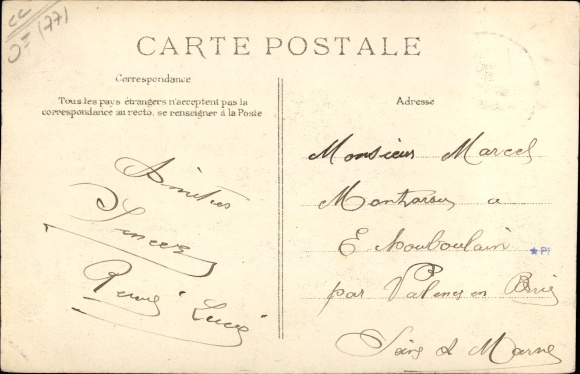 CC
1771
CARTE POSTALE
Correspondance
Tous les pays étrangers n'acceptent pas la
correspondance au recto, se renseigner à la Poste
Amitiés
Sincères
René Lucie
Adresse
Monsieur Marcel
à
par Valence en Brie
Seine et Marne